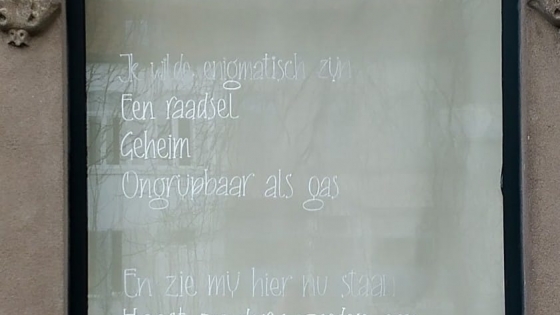 Ik wilde enigmatisch zijn
Een raadsel
Geheim
Ongrijpbaar als gas
En zie mij hier nu staan